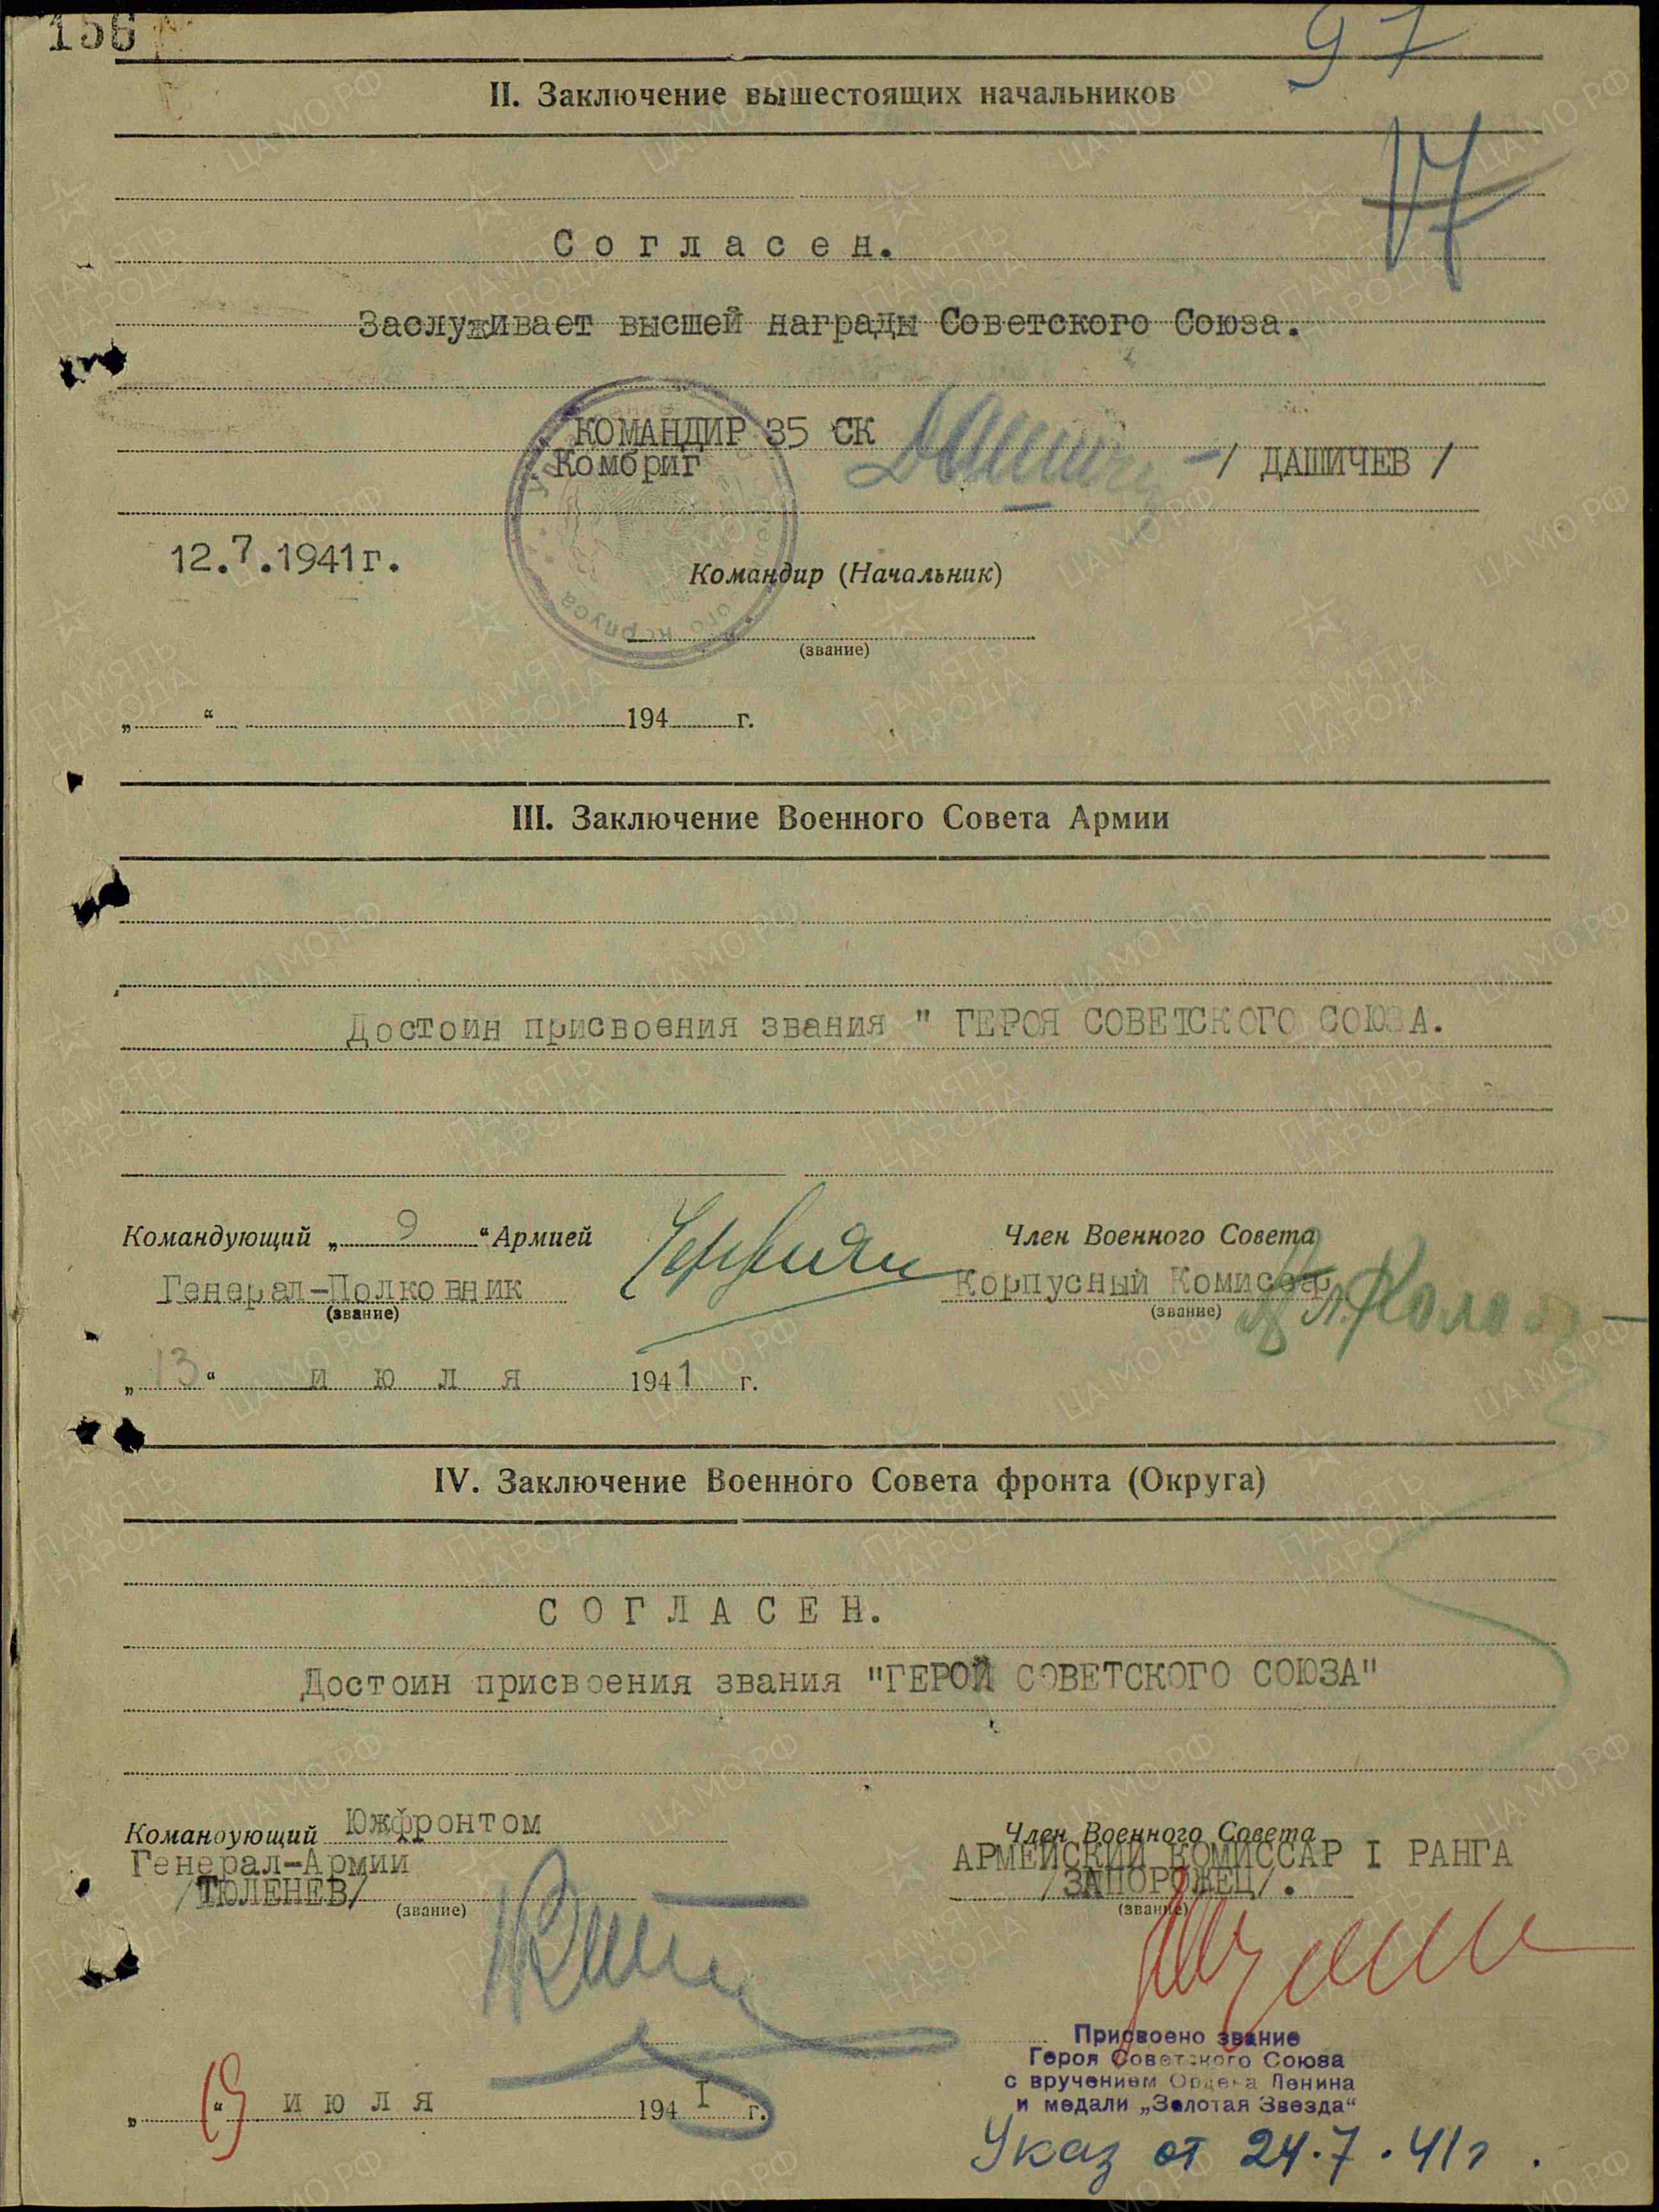 156
97
17
II. Заключение вышестоящих начальников
Согласен.
Заслуживает высшей награды Советского Союза.
КОМАНДИР 35 СК
Комбриг / ДАШИЧЕВ /
12.7.1941г.
Командир (Начальник)
(звание)
„ “ 194 г.
III. Заключение Военного Совета Армии
Достоин присвоения звания " ГЕРОЯ СОВЕТСКОГО СОЮЗА.
Командующий „ 9 “ Армией Член Военного Совета
Генерал-Полковник Корпусный Комиссар
(звание) (звание)
„ 13 “ июля 1941 г.
IV. Заключение Военного Совета фронта (Округа)
СОГЛАСЕН.
Достоин присвоения звания "ГЕРОЙ СОВЕТСКОГО СОЮЗА"
Командующий Южфронтом Член Военного Совета
Генерал-Армии АРМЕЙСКИЙ КОМИССАР I РАНГА
/ТЮЛЕНЕВ/ /ЗАПОРОЖЕЦ/.
(звание) (звание)
Присвоено звание
Героя Советского Союза
с вручением Ордена Ленина
и медали „Золотая Звезда“
„ “ июля 194 I г.
Указ от 24.7.41г.
ПАМЯТЬ НАРОДА
ЦАМО.РФ